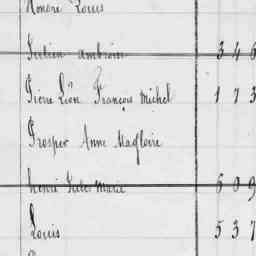 Honoré Louis
Julien Ambroise 3 4 6
Pierre Léon François Michel 1 7 3
Prosper Anne Magloire
Henri Jules Marie 6 0 9
Louis 5 3 7